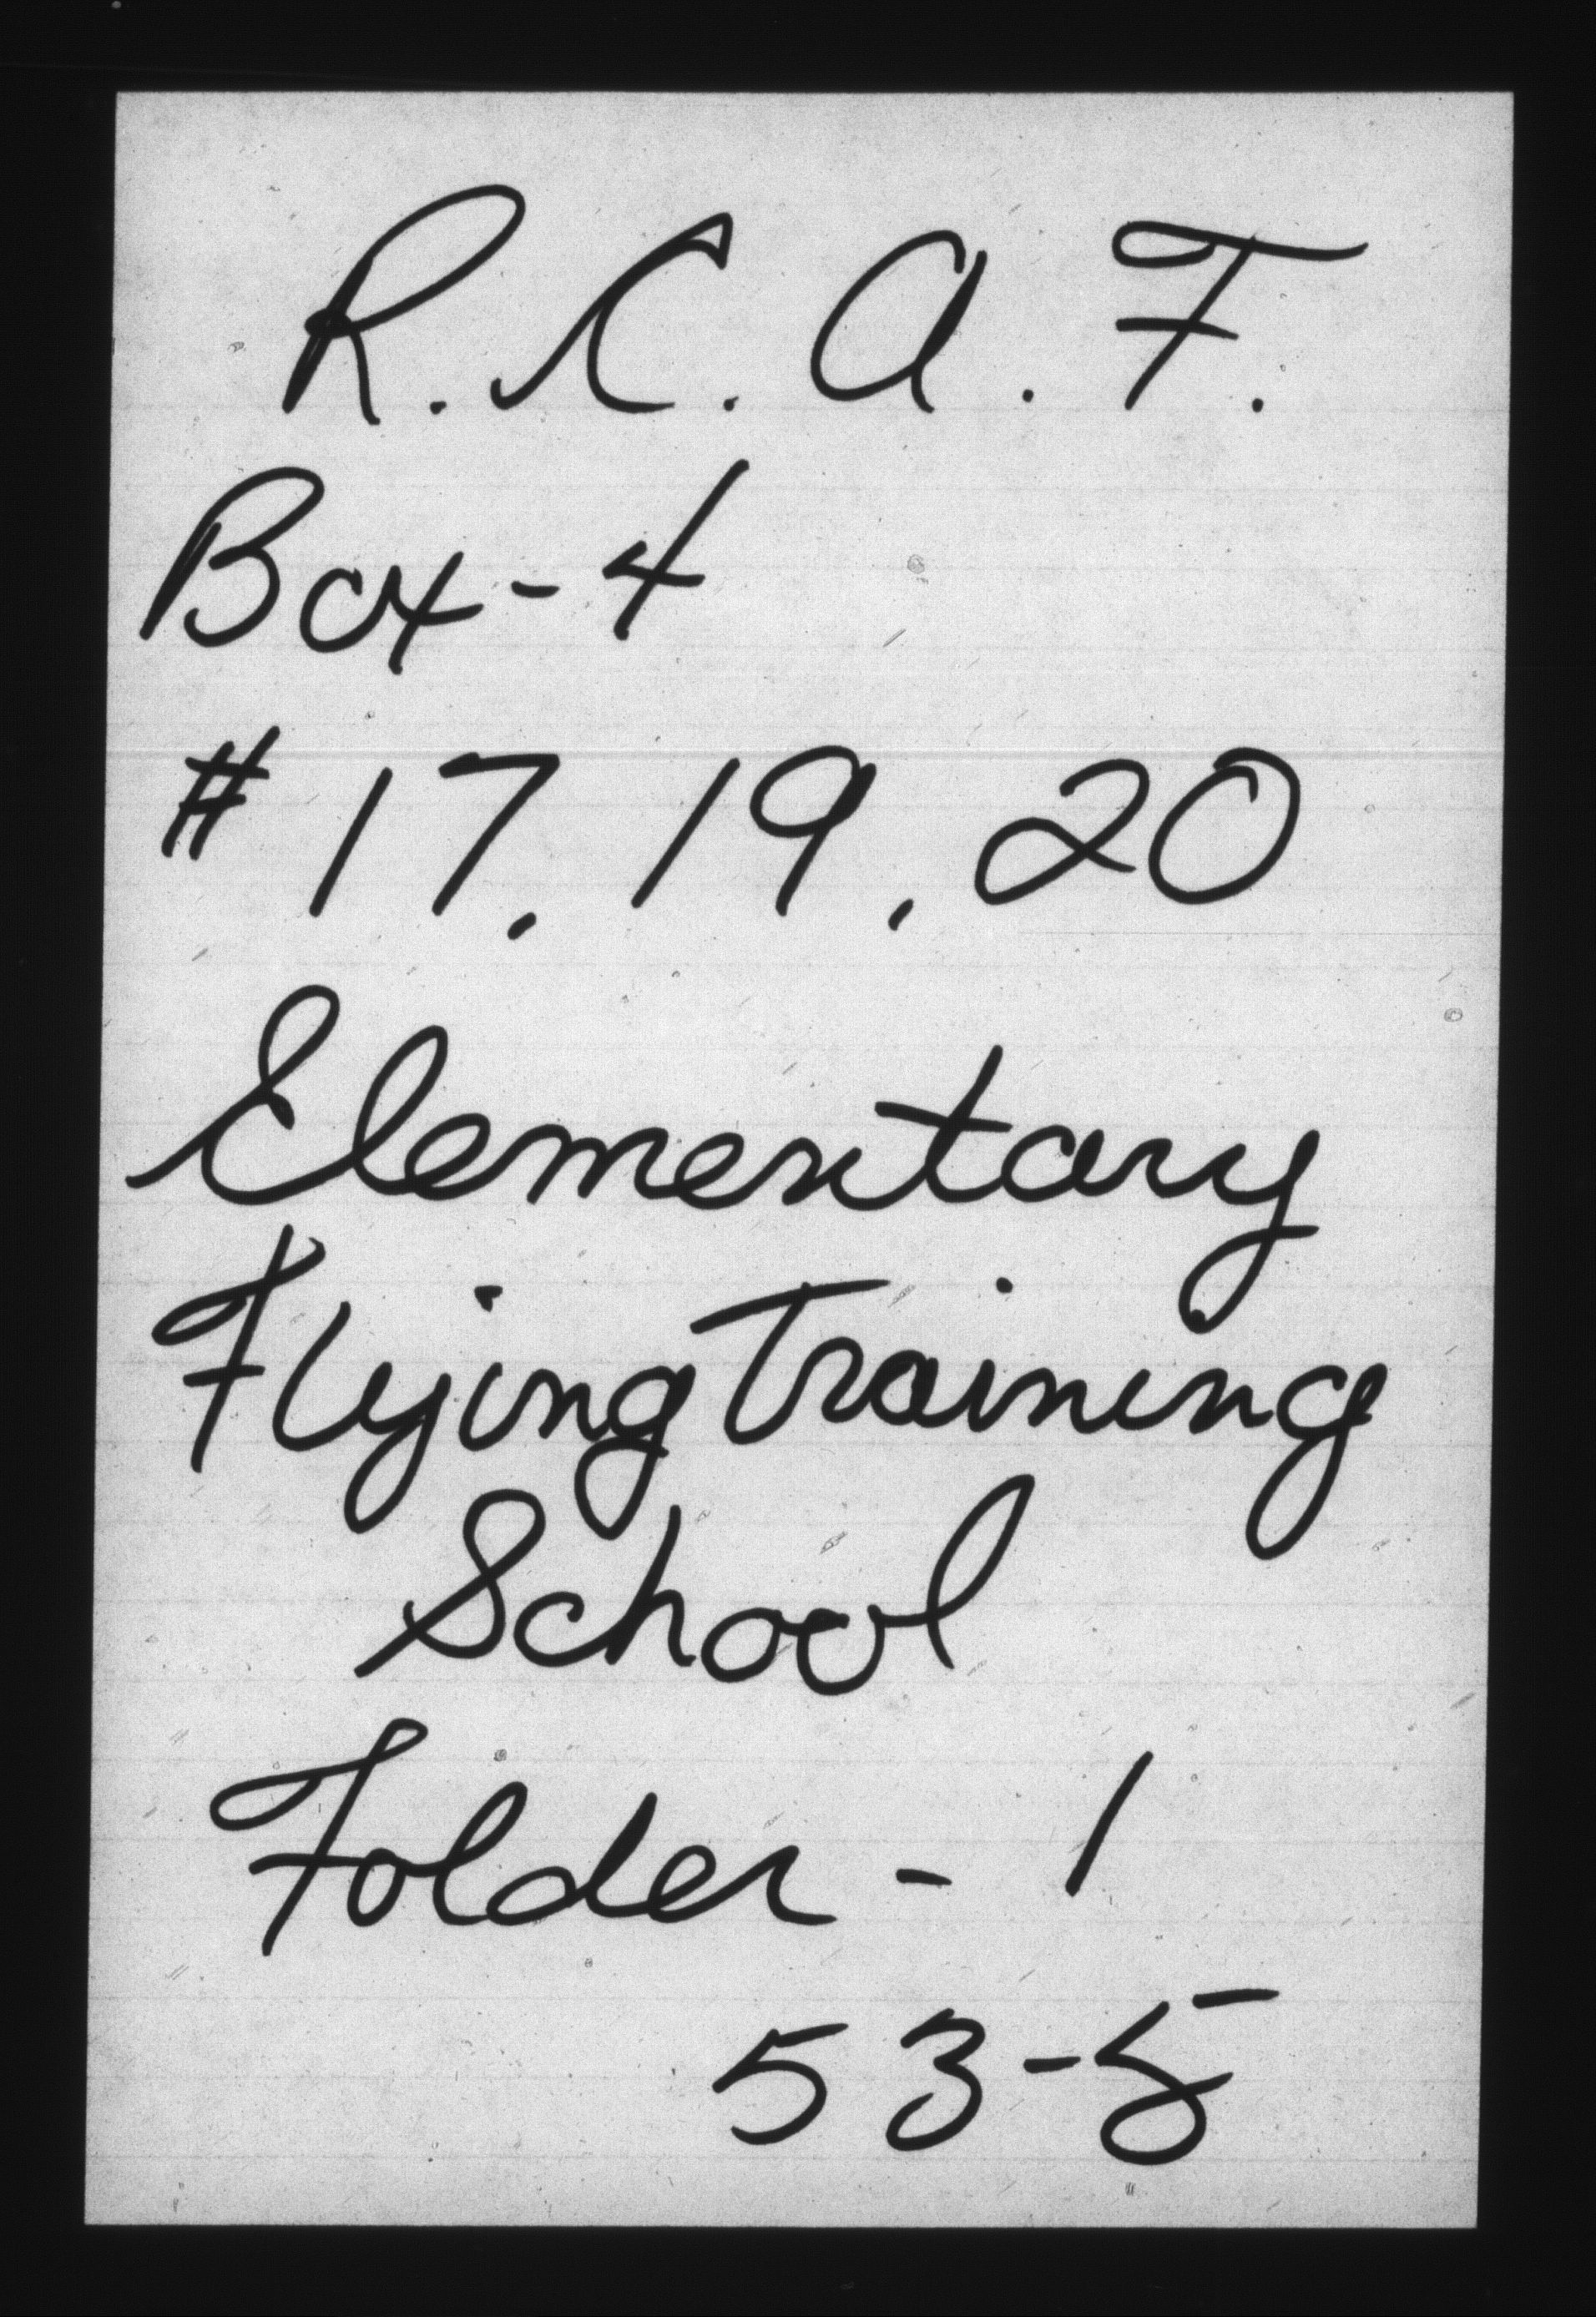 R. C. A. F.
Box - 4
# 17, 19, 20
Elementary
Flying Training
School
Folder - 1
53-5